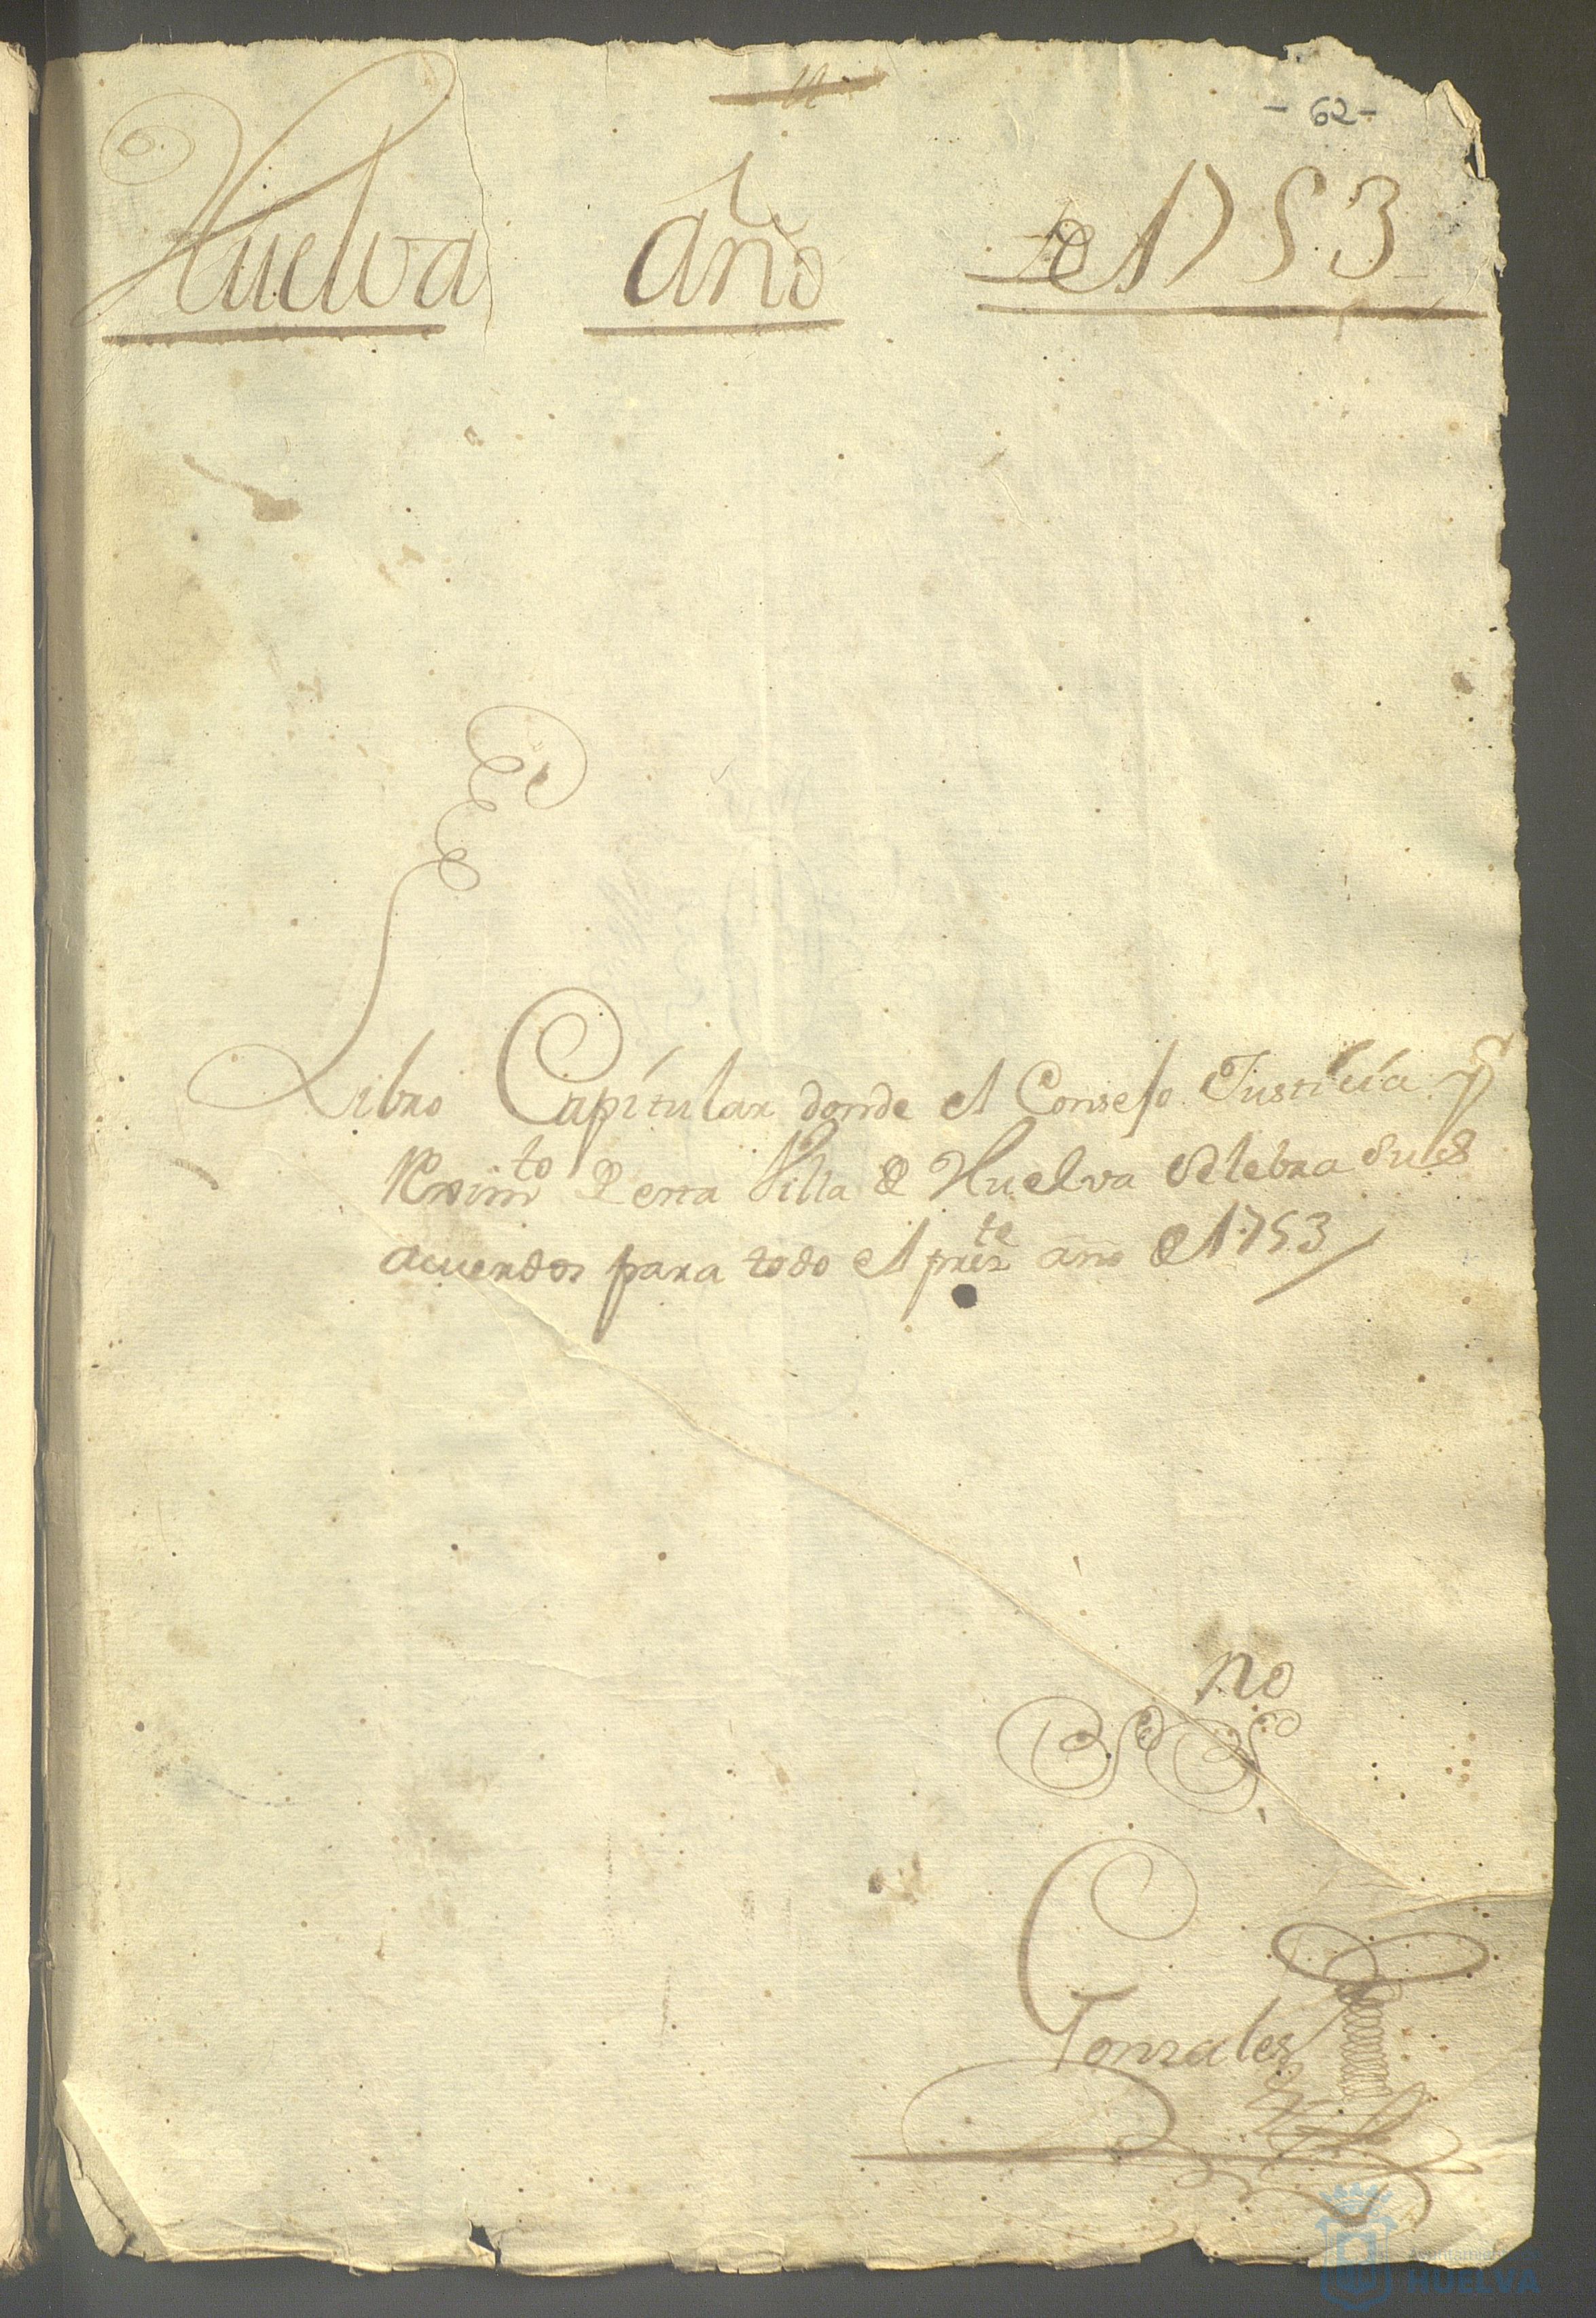 - 62 -
Huelva año de 1753
Libro Capitular donde el Consejo Justicia y
Reximto de esta Villa de Huelva Selebra sus
acuerdos para todo el prete año de 1753
no
Gonzales
HUELVA